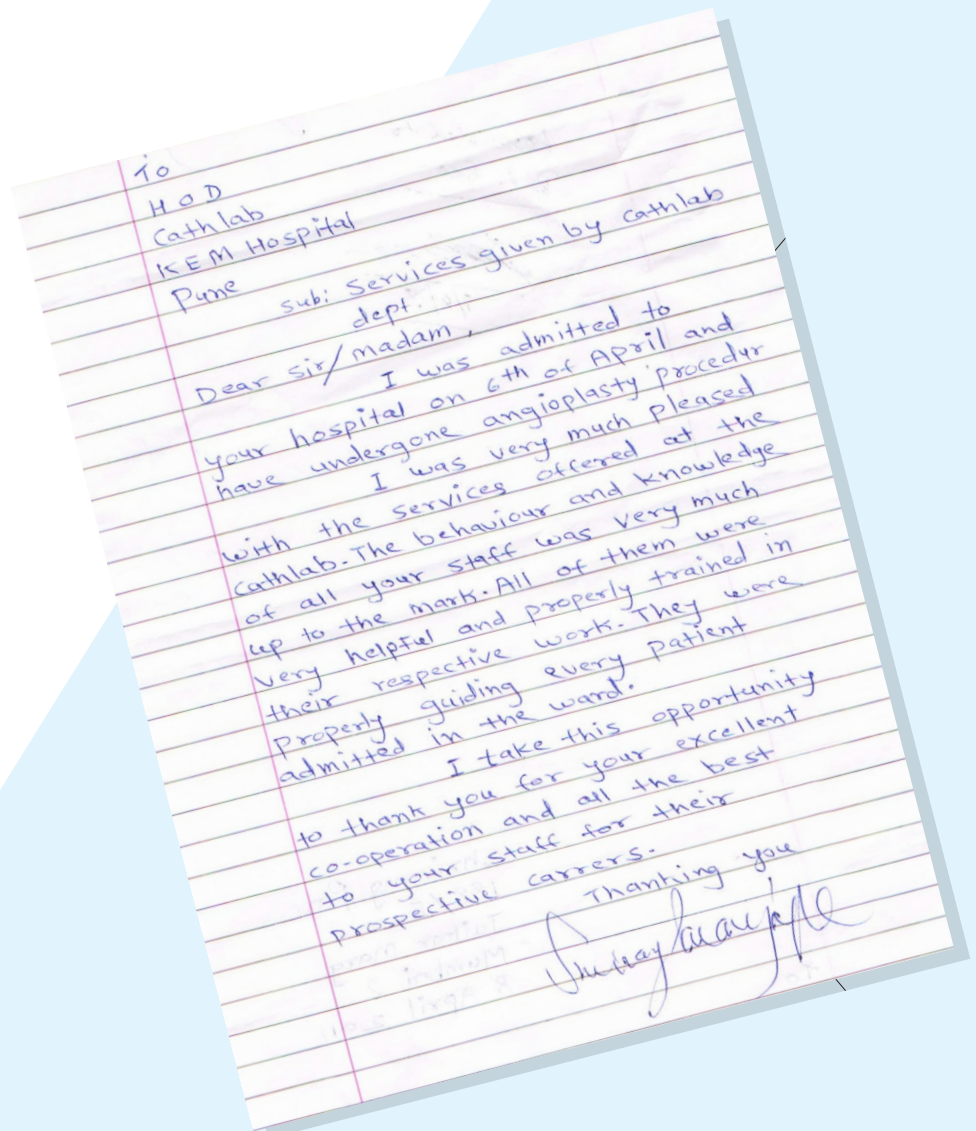 To
HOD
Cathlab
KEM Hospital
Pune
sub: services given by cathlab
dept.
Dear sir/madam,
I was admitted to
your hospital on 6th of April and
have undergone angioplasty procedur
I was very much pleased
with the services offered at the
cathlab. The behaviour and knowledge
of all your staff was very much
up to the mark. All of them were
very helpful and properly trained in
their respective work. They were
properly guiding every patient
admitted in the ward.
I take this opportunity
to thank you for your excellent
co-operation and all the best
to your staff for their
prospective carrers.
Thanking you